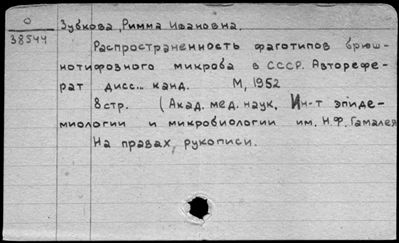 О
38544
Зубкова, Римма Ивановна.
Распространенность фаготипов брюш-
нотифозного микроба в СССР. Авторефе-
рат дисс... канд. М, 1952
8 стр. (Акад. мед. наук. Ин-т эпиде-
миологии и микробиологии им. Н.Ф. Гамалея
На правах, рукописи.